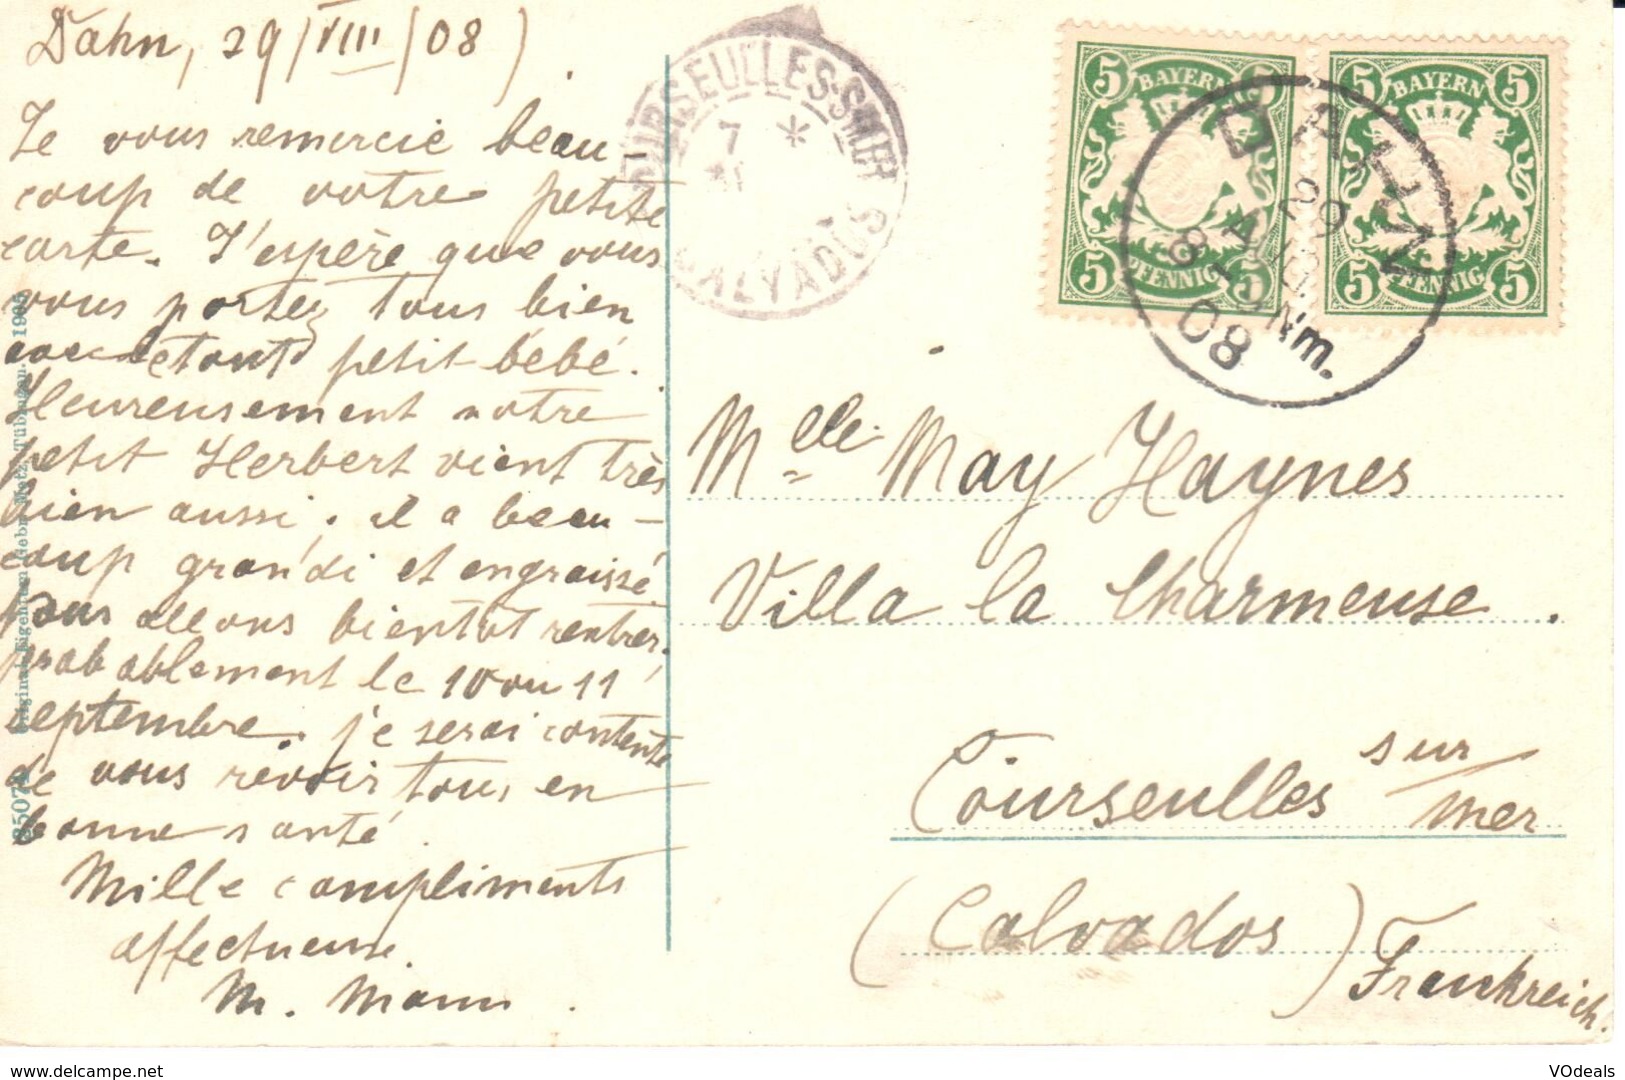 Dahn, 29/VIII/08)
Je vous remercie beau-
coup de votre petite
carte. J'espère que vous
vous portez tous bien
petit bébé.
Heureusement notre
petit Herbert vient très
bien aussi; il a beau-
coup grandi et engraissé.
Nous allons bientôt rentrer,
probablement le 10 ou 11
septembre. je serai contente
de vous revoir tous en
bonne santé.
Mille compliments
affectueux.
M. Mann.
85074 Original-Eigentum Gebr. Metz, Tübingen.
COURSEULLES-S-MER
7 *
CALVADOS
5 BAYERN 5
5 PFENNIG 5
5 BAYERN 5
5 PFENNIG 5
DAHN
29
AUG.
8-9 Nm.
08
Mlle May Haynes
Villa la Charmeuse.
Courseulles sur mer
(Calvados)
Frankreich.
delcampe.net
VOdeals